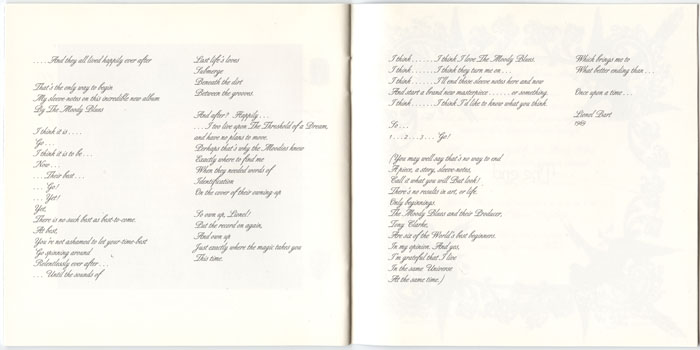 . . . . And they all lived happily ever after
That's the only way to begin
My sleeve notes on this incredible new album
By The Moody Blues
I think it is . . . .
Go . . .
I think it is to be . . .
Now . . .
. . . Their best . . .
. . . Go!
. . . Yet!
Yet,
There is no such best as best-to-come.
At best,
You're not ashamed to let your time-best
Go spinning around
Relentlessly ever after . . .
. . . Until the sounds of
Last life's loves
Submerge
Beneath the dirt
Between the grooves.
And after? Happily . . .
. . . . I too live upon The Threshold of a Dream,
and have no plans to move.
Perhaps that's why the Moodies knew
Exactly where to find me
When they needed words of
Identification
On the cover of their owning-up
So own up, Lionel!
Put the record on again,
And own up
Just exactly where the magic takes you
This time.
I think . . . . . . . I think I love The Moody Blues.
I think . . . . . . . I think they turn me on . . .
I think . . . . . . . I'll end these sleeve notes here and now
And start a brand new masterpiece . . . . . . or something.
I think . . . . . . . I think I'd like to know what you think.
So . . .
1 . . . 2 . . . 3 . . . Go!
(You may well say that's no way to end
A piece, a story, sleeve-notes,
Call it what you will But look!
There's no results in art, or life.
Only beginnings.
The Moody Blues and their Producer,
Tony Clarke,
Are six of the World's best beginners.
In my opinion. And yes,
I'm grateful that I live
In the same Universe
At the same time.)
Which brings me to
What better ending than . . .
Once upon a time . . .
Lionel Bart
1969